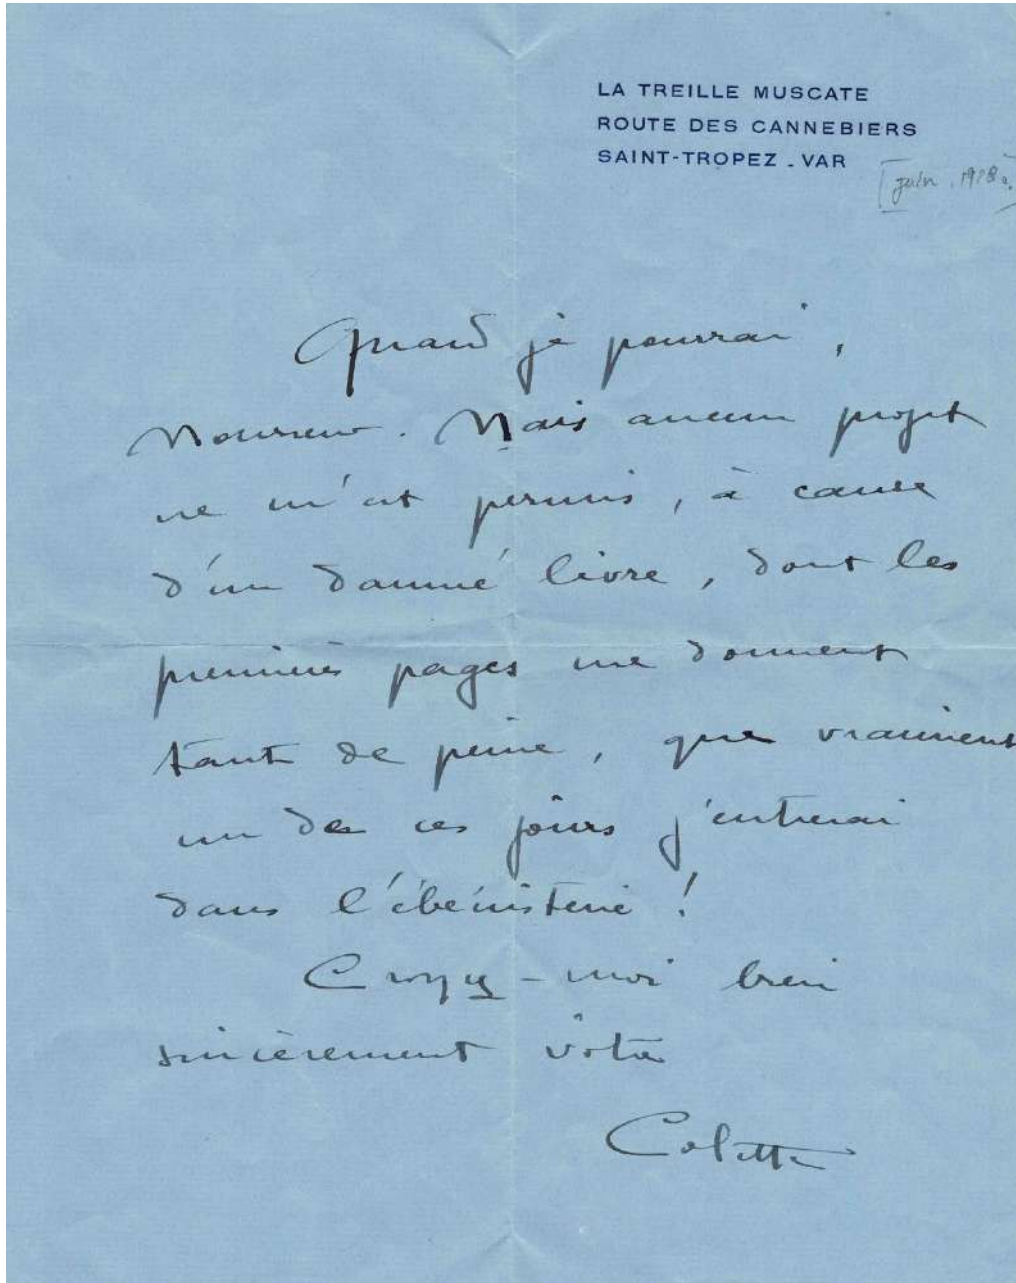 LA TREILLE MUSCATE
ROUTE DES CANNEBIERS
SAINT-TROPEZ - VAR
[juin 1928
Quand je pourrai,
Monsieur. Mais aucun projet
ne m'est permis, à cause
d'un damné livre, dont les
premières pages me donnent
tant de peine, que vraiment
un de ces jours j'entrerai
dans l'ébénisterie !
Croyez-moi bien
sincèrement vôtre
Colette